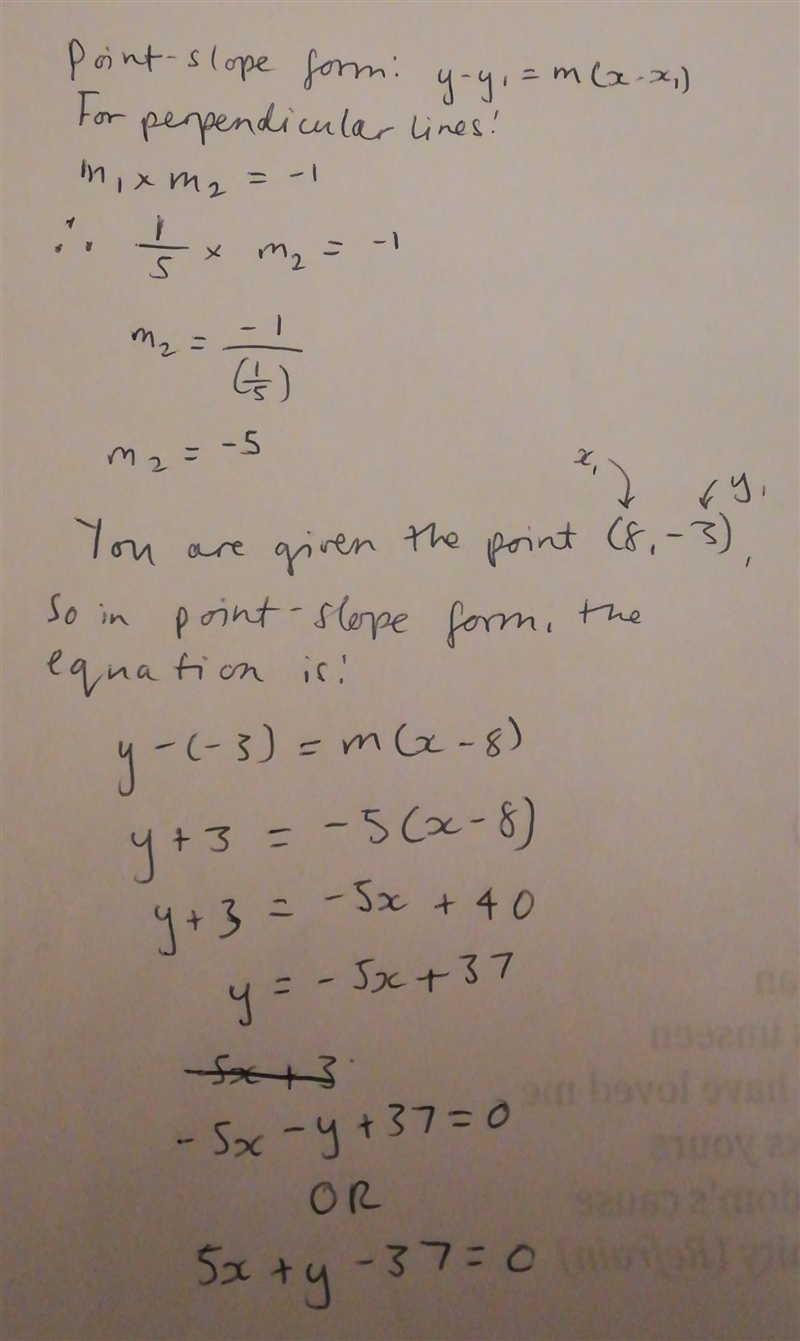 Point-slope form: y-y₁ = m(x-x₁)
For perpendicular lines:
m₁ × m₂ = -1
∴ 1/5 × m₂ = -1
m₂ = -1/(1/5)
m₂ = -5
x₁ y₁
You are given the point (8,-3),
So in point-slope form, the
equation is:
y-(-3) = m(x-8)
y+3 = -5(x-8)
y+3 = -5x + 40
y = -5x+37
-5x+3
-5x-y+37=0
OR
5x+y-37=0
an
unseen
have loved me
yours
dom's cause
ity (Refrain)